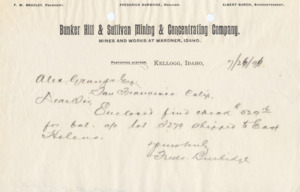 F. W. BRADLEY, PRESIDENT. FREDERICK BURBIDGE, ALBERT BURCH, SUPERINTENDENT.
Bunker Hill & Sullivan Mining & Concentrating Company.
MINES AND WORKS AT WARDNER, IDAHO.
KELLOGG, IDAHO, 7/26/96
San Francisco Calif.
Dear Sir
Enclosed find check
for bal. a/c lot shipped to East
Helena.
Fredk Burbidge